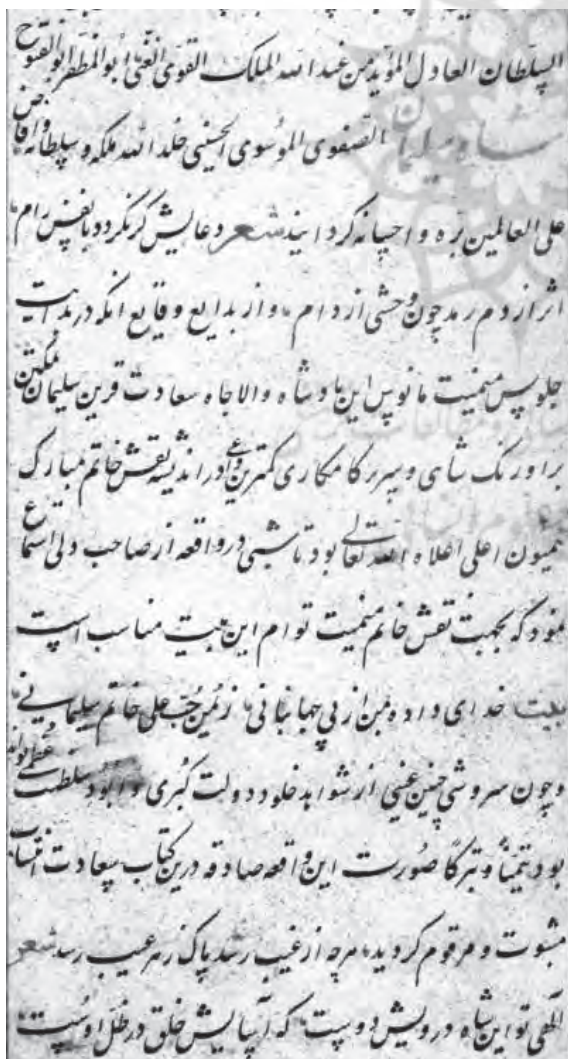 السلطان العادل المؤید من عند الله الملک القوی الغنی ابوالمظفر ابوالفتوح
شاه سلیمان الصفوی الموسوی الحسینی خلد الله ملکه و سلطانه و افاض
علی العالمین بره و احسانه گردانید شعر دعایش گر نگردد با نفس رام
اثر از دم رمد چون وحشی از دام و از بدایع وقایع آنکه در بدایت
جلوس میمنت مانوس این پادشاه والاجاه سعادت قرین سلیمان مکین
بر اورنگ شاهی و سریر کامکاری کمترین داعی در اندیشه نقش خاتم مبارک
همیون اعلی اعلاه الله تعالی بود تا شبی در واقعه از صاحب دلی استماع
نمود که بجهت نقش خاتم میمنت توام این بیت مناسب است
بیت خدای داده بمن از پی جهانبانی ز یمن حب علی خاتم سلیمانی
و چون سروشی چنین غیبی از شواهد خلود دولت کبری و ابود سلطنت عظمی تواند
بود تیمنا و تبرکا صورت این واقعه صادقه درین کتاب سعادت انتساب
مثبوت و مرقوم گردید هرچه از غیب رسد پاک ز هر عیب رسد شعر
الهی تو این شاه درویش دوست که آسایش خلق در ظل اوست